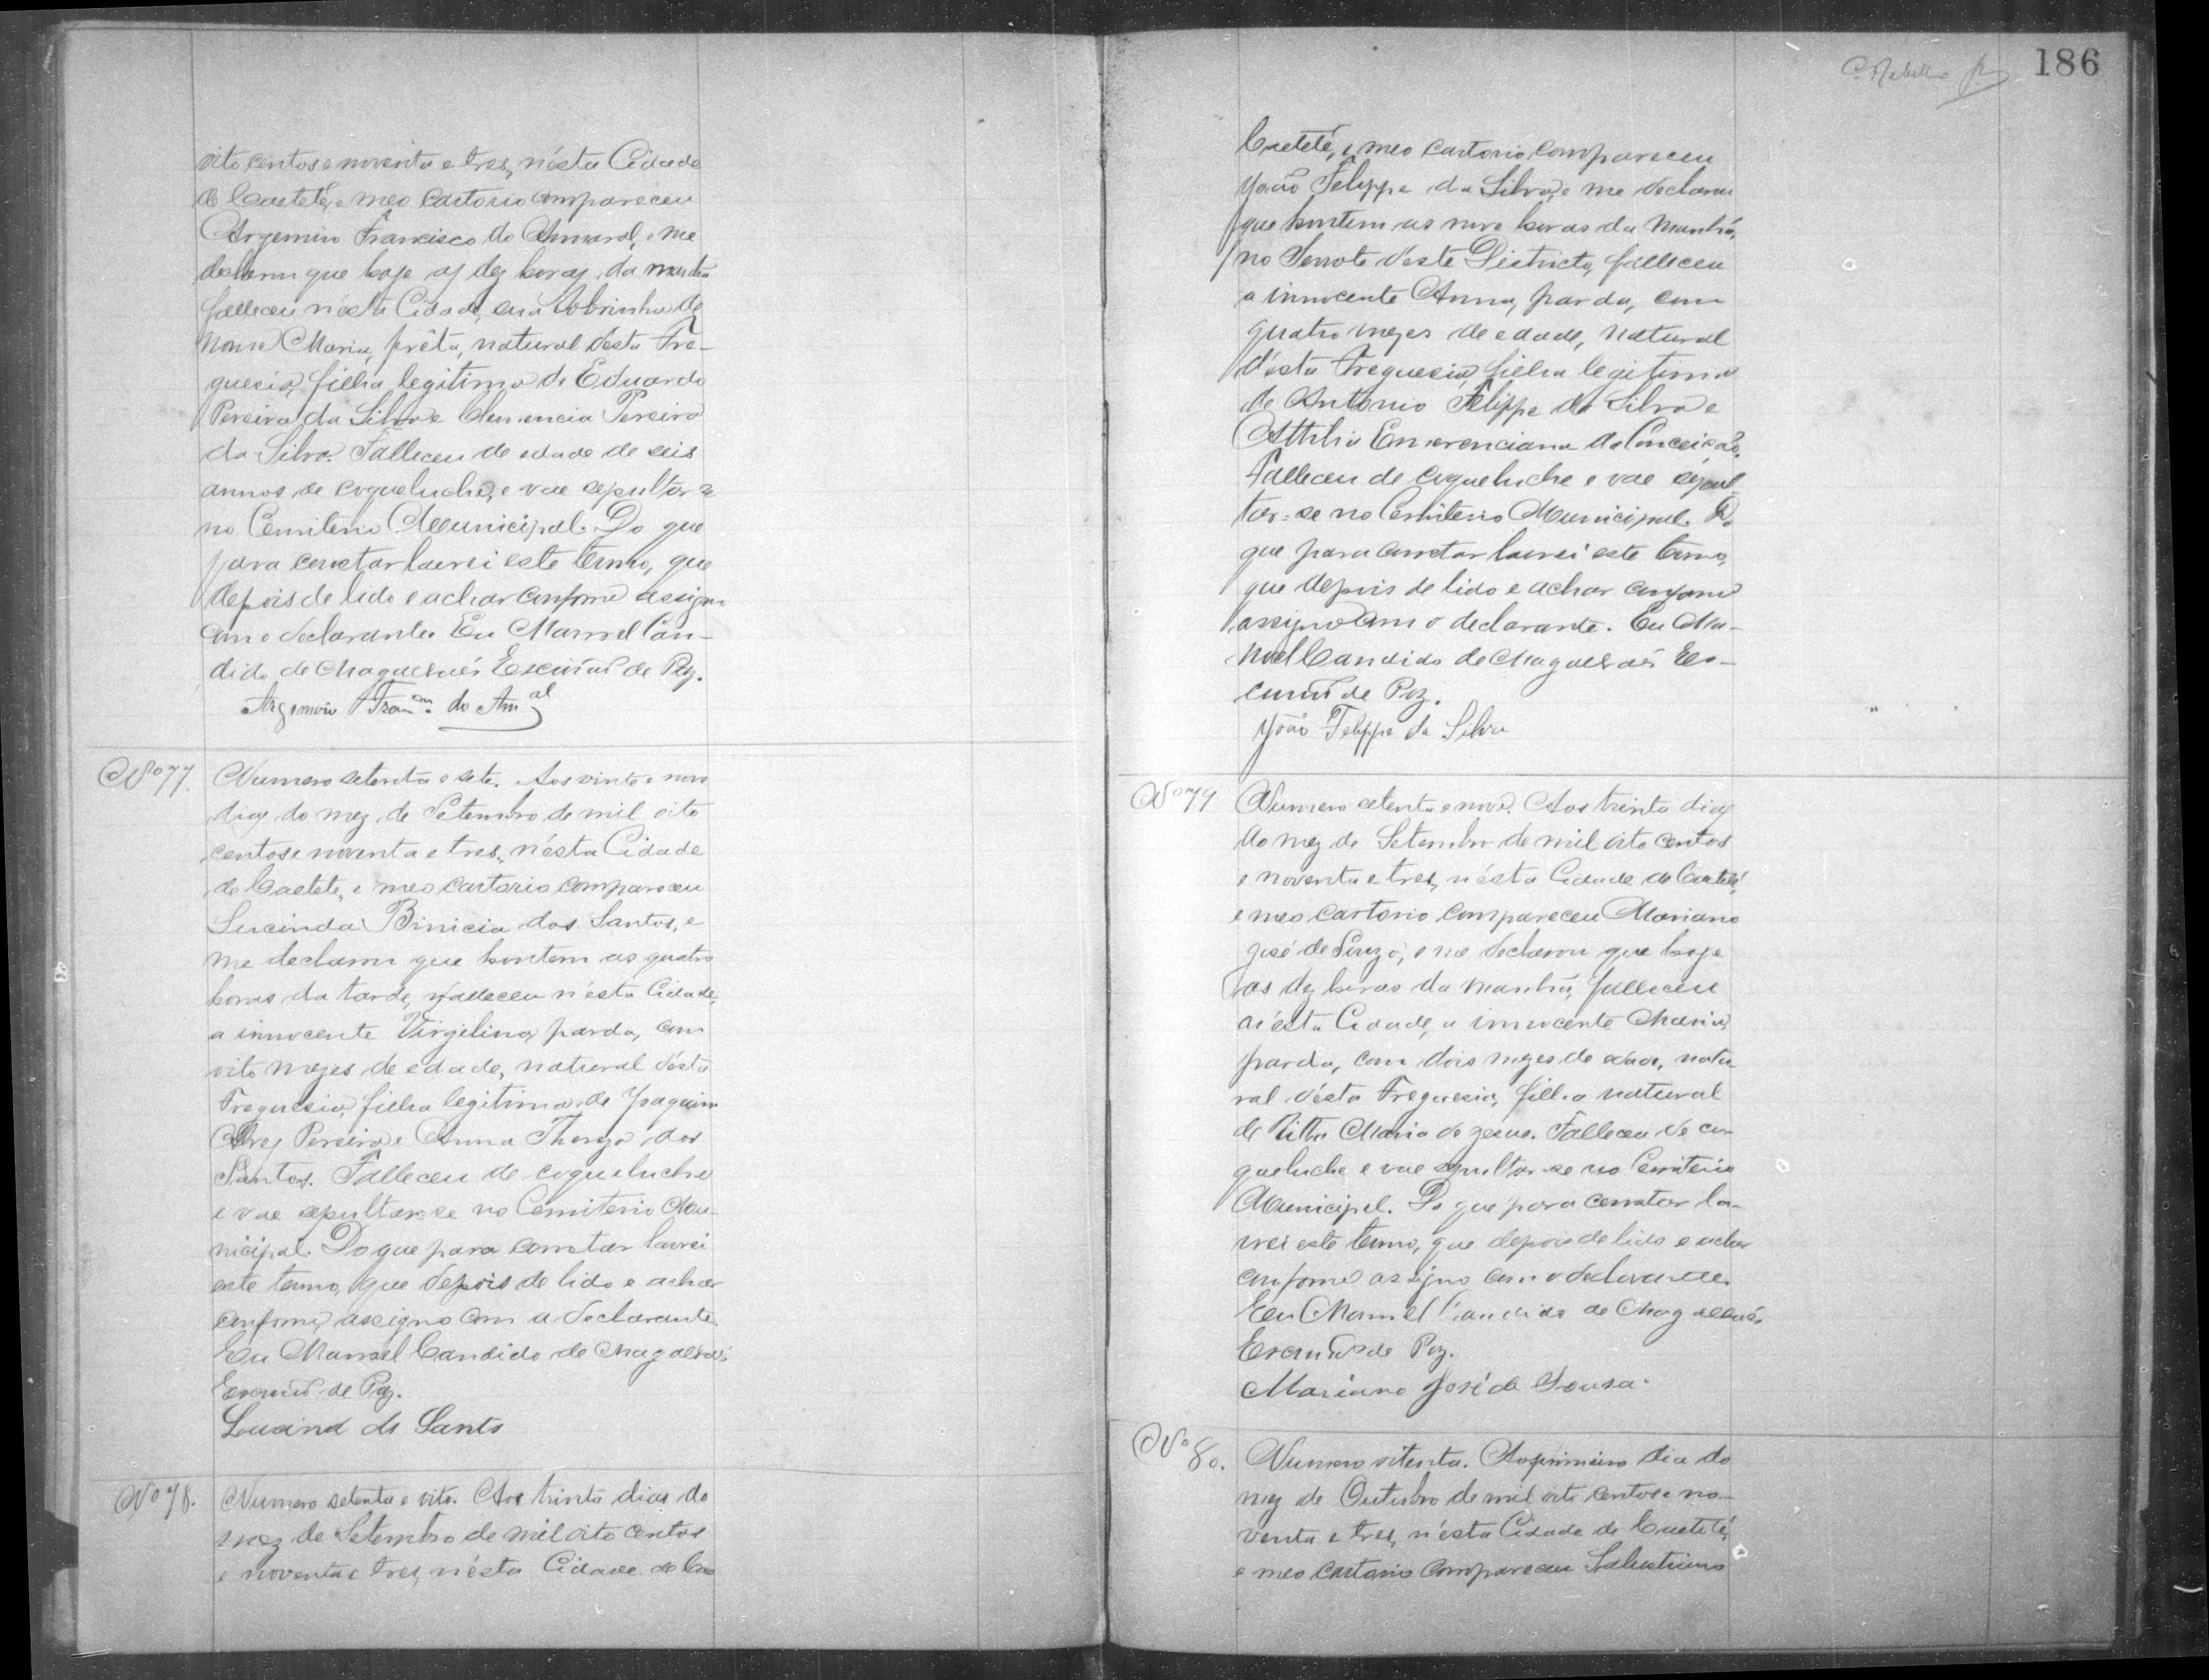 oito centos e noventa e tres, n'ésta Cidade
de Caeteté, e meo cartorio compareceu
Argemiro Francisco do Amaral, e me
declarou que hoje as dez horas da manhã
falleceu n'ésta Cidade, sua sobrinha de
nome Maria, prêta, natural désta Fre-
guesia, filha legitima de Eduardo
Pereira da Silva e Clemencia Pereira
da Silva. Falleceu de edade de seis
annos de coqueluche, e vae sepultar-se
no Cemiterio Municipal. Do que
para constar lavrei este termo, que
depois de lido e achar conforme assigno
com o declarante. Eu Manoel Can-
dido de Magalhães Escrivão de Paz.
Argemiro Fran.co do Am.al
Nº 77.
Numero setenta e sete. Aos vinte e nove
dias do mez de Setembro de mil oito
centos e noventa e tres, n'ésta Cidade
de Caeteté, e meo cartorio compareceu
Lucinda Binicia dos Santos, e
me declarou que hontem as quatro
horas da tarde, falleceu n'ésta Cidade,
a innocente Virgelina, parda, com
oito mezes de edade, natural désta
Freguesia, filha legitima de Joaquim
Alves Pereira e Anna Thereza dos
Santos. Falleceu de coqueluche
e vae sepultar-se no Cemiterio Mu-
nicipal. Do que para constar lavrei
este termo, que depois de lido e achar
conforme, assigno com a declarante.
Eu Manoel Candido de Magalhães
Escrivão de Paz.
Lucind ds Sants
Nº 78.
Numero setenta e oito. Aos trinta dias do
mez de Setembro de mil oito centos
e noventa e tres, n'ésta Cidade de Cae
186
Caeteté, e meo cartorio compareceu
João Felippe da Silva, e me declarou
que hontem as nove horas da manhã,
no Serrote d'éste Districto, falleceu
a innocente Anna, parda, com
quatro mezes de edade, natural
d'ésta Freguesia, filha legitima
de Antonio Felippe da Silva e
Attilia Emerenciana da Conceição.
Falleceu de coqueluche e vae sepul
tar-se no Cemiterio Municipal. Do
que para constar lavrei este termo,
que depois de lido e achar conforme
assigno com o declarante. Eu Ma-
noel Candido de Magalhães Es-
crivão de Paz.
João Felippe da Silva
Nº 79
Numero setenta e nove. Aos trinta dias
do mez de Setembro de mil oito centos
e noventa e tres, n'ésta Cidade de Caeteté,
e meo cartorio compareceu Mariano
José de Souza, e me declarou que hoje
as dez horas da manhã, falleceu
n'ésta Cidade, a innocente Maria,
parda, com dois mezes de edade, natu
ral désta Freguesia, filha natural
de Ritta Maria de Jesus. Falleceu de co-
queluche e vae sepultar-se no Cemiterio
Municipal. Do que para constar la-
vrei este termo, que depois de lido e achar
conforme assigno com o declarante.
Eu Manoel Candido de Magalhães
Escrivão de Paz.
Mariano José de Sousa.
Nº 80.
Numero oitenta. Ao primeiro dia do
mez de Outubro de mil oito centos e no-
venta e tres, n'ésta Cidade de Caeteté,
e meo cartorio compareceu Salustiano